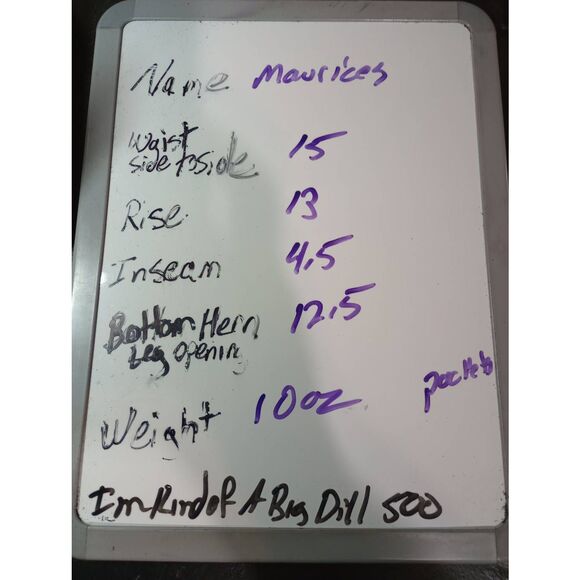 Name Maurices
Waist
side to side 15
Rise 13
Inseam 4.5
Bottom Hem 12.5
Leg Opening
Weight 10oz pockets
Im Kind of A Big Dill 500